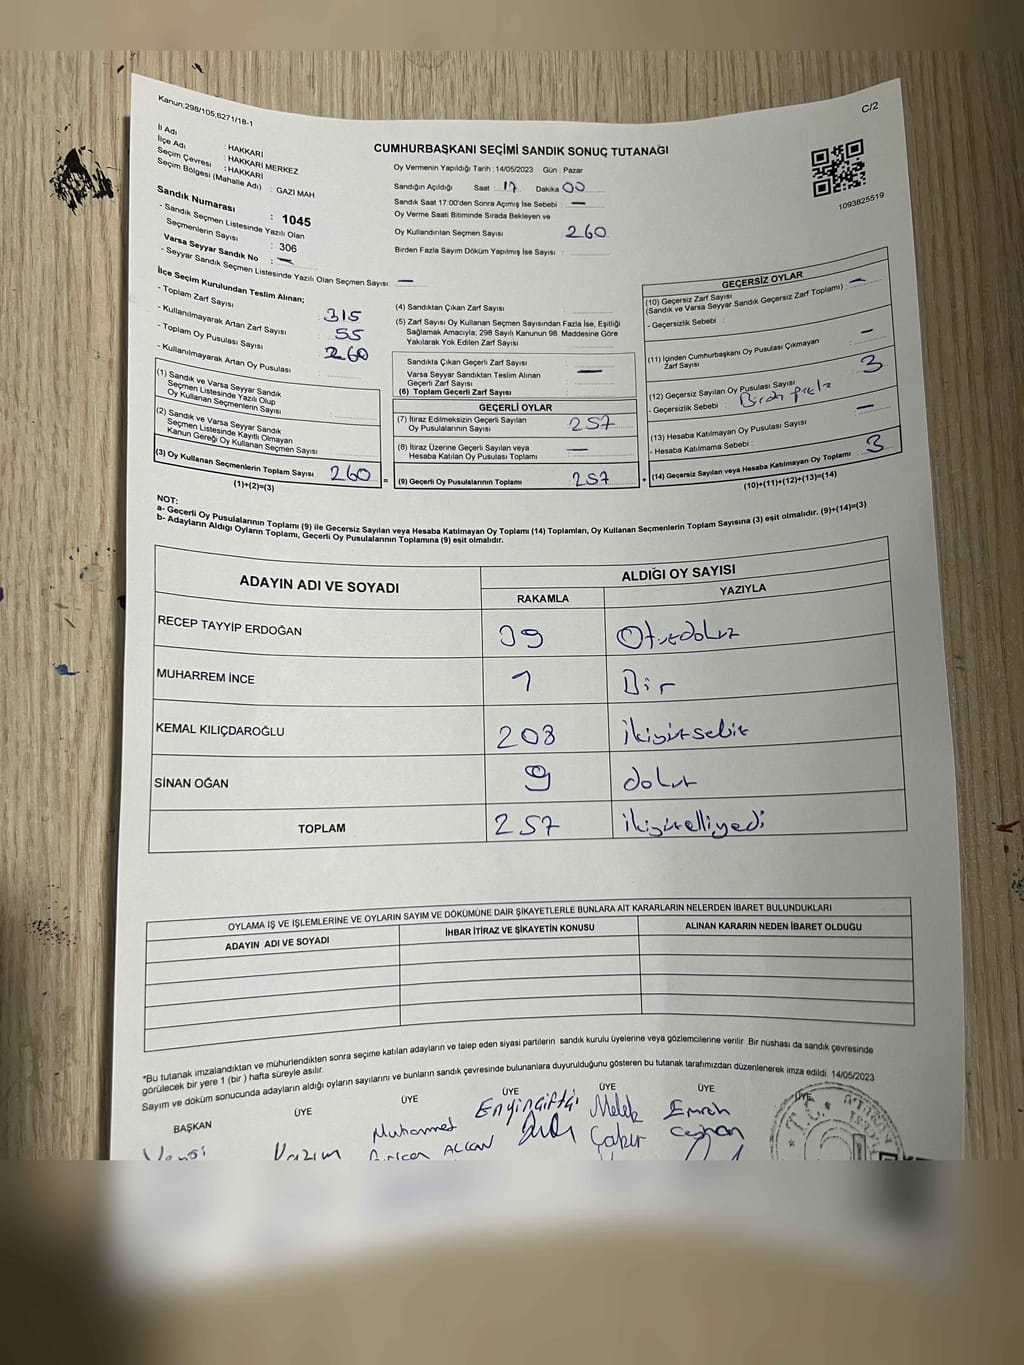 Kanun;298/105,6271/18-1
C/2
İl Adı : HAKKARİ
İlçe Adı : HAKKARİ MERKEZ
Seçim Çevresi : HAKKARİ
Seçim Bölgesi (Mahalle Adı) : GAZİ MAH
Sandık Numarası : 1045
- Sandık Seçmen Listesinde Yazılı Olan
Seçmenlerin Sayısı : 306
Varsa Seyyar Sandık No : —
- Seyyar Sandık Seçmen Listesinde Yazılı Olan Seçmen Sayısı: —
CUMHURBAŞKANI SEÇİMİ SANDIK SONUÇ TUTANAĞI
Oy Vermenin Yapıldığı Tarih : 14/05/2023 Gün : Pazar
Sandığın Açıldığı Saat : 17 Dakika 00
Sandık Saat 17:00'den Sonra Açımış İse Sebebi : —
Oy Verme Saati Bitiminde Sırada Bekleyen ve
Oy Kullandırılan Seçmen Sayısı 260
Birden Fazla Sayım Döküm Yapılmış İse Sayısı :
1093825519
İlçe Seçim Kurulundan Teslim Alınan;
- Toplam Zarf Sayısı : 315
- Kullanılmayarak Artan Zarf Sayısı : 55
- Toplam Oy Pusulası Sayısı : 260
- Kullanılmayarak Artan Oy Pusulası :
(1) Sandık ve Varsa Seyyar Sandık
Seçmen Listesinde Yazılı Olup
Oy Kullanan Seçmenlerin Sayısı :
(2) Sandık ve Varsa Seyyar Sandık
Seçmen Listesinde Kayıtlı Olmayan
Kanun Gereği Oy Kullanan Seçmen Sayısı :
(3) Oy Kullanan Seçmenlerin Toplam Sayısı 260
(1)+(2)=(3)
(4) Sandıktan Çıkan Zarf Sayısı :
(5) Zarf Sayısı Oy Kullanan Seçmen Sayısından Fazla İse, Eşitliği
Sağlamak Amacıyla; 298 Sayılı Kanunun 98. Maddesine Göre
Yakılarak Yok Edilen Zarf Sayısı :
Sandıkta Çıkan Geçerli Zarf Sayısı :
Varsa Seyyar Sandıktan Teslim Alınan
Geçerli Zarf Sayısı : —
(6) Toplam Geçerli Zarf Sayısı :
GEÇERLİ OYLAR
(7) İtiraz Edilmeksizin Geçerli Sayılan
Oy Pusulalarının Sayısı : 257
(8) İtiraz Üzerine Geçerli Sayılan veya
Hesaba Katılan Oy Pusulası Toplamı : —
(9) Geçerli Oy Pusulalarının Toplamı : 257
GEÇERSİZ OYLAR
(10) Geçersiz Zarf Sayısı
(Sandık ve Varsa Seyyar Sandık Geçersiz Zarf Toplamı) : —
- Geçersizlik Sebebi :
(11) İçinden Cumhurbaşkanı Oy Pusulası Çıkmayan
Zarf Sayısı : —
(12) Geçersiz Sayılan Oy Pusulası Sayısı : 3
- Geçersizlik Sebebi :
(13) Hesaba Katılmayan Oy Pusulası Sayısı : —
- Hesaba Katılmama Sebebi :
(14) Geçersiz Sayılan veya Hesaba Katılmayan Oy Toplamı : 3
(10)+(11)+(12)+(13)=(14)
NOT:
a- Gecerli Oy Pusulalarının Toplamı (9) ile Gecersiz Sayılan veya Hesaba Katılmayan Oy Toplamı (14) Toplamları, Oy Kullanan Seçmenlerin Toplam Sayısına (3) eşit olmalıdır. (9)+(14)=(3)
b- Adayların Aldığı Oyların Toplamı, Geçerli Oy Pusulalarının Toplamına (9) eşit olmalıdır.
ADAYIN ADI VE SOYADI
ALDIĞI OY SAYISI
RAKAMLA YAZIYLA
RECEP TAYYİP ERDOĞAN 39 Otuzdokuz
MUHARREM İNCE 1 Bir
KEMAL KILIÇDAROĞLU 208 ikiyüzsekiz
SİNAN OĞAN 9 dokuz
TOPLAM 257 ikiyüzelliyedi
OYLAMA İŞ VE İŞLEMLERİNE VE OYLARIN SAYIM VE DÖKÜMÜNE DAİR ŞİKAYETLERLE BUNLARA AİT KARARLARIN NELERDEN İBARET BULUNDUKLARI
ADAYIN ADI VE SOYADI
İHBAR İTİRAZ VE ŞİKAYETİN KONUSU
ALINAN KARARIN NEDEN İBARET OLDUĞU
*Bu tutanak imzalandıktan ve mühürlendikten sonra seçime katılan adayların ve talep eden siyasi partilerin sandık kurulu üyelerine veya gözlemcilerine verilir. Bir nüshası da sandık çevresinde
görülecek bir yere 1 (bir ) hafta süreyle asılır.
Sayım ve döküm sonucunda adayların aldığı oyların sayılarını ve bunların sandık çevresinde bulunanlara duyurulduğunu gösteren bu tutanak tarafımızdan düzenlenerek imza edildi. 14/05/2023
BAŞKAN ÜYE ÜYE ÜYE ÜYE ÜYE ÜYE
Muhammed
Melek
Çakır
Emrah
Ceyhan
T.C.